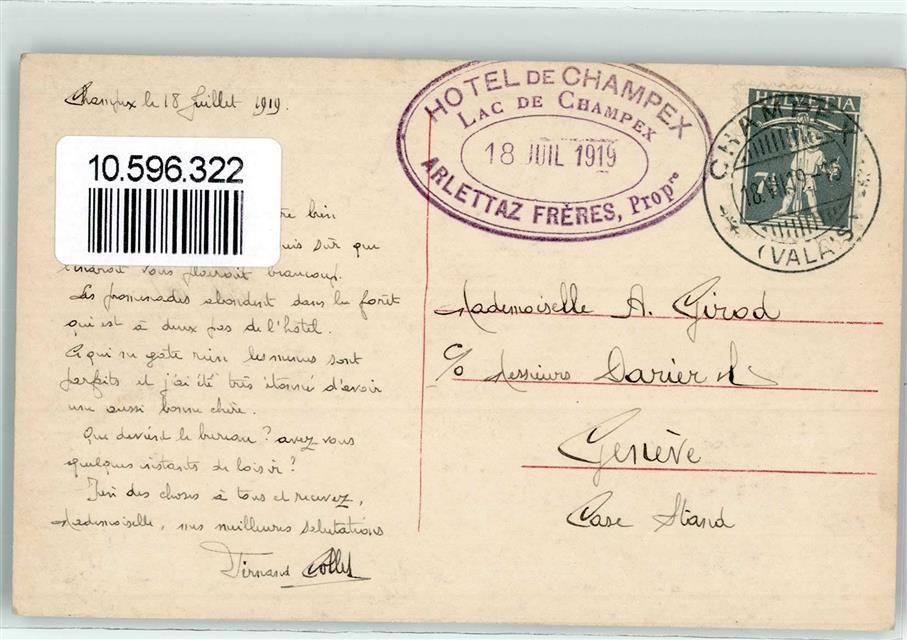 Champex le 18 Juillet 1919.
10.596.322
bien
sûr que
l'endroit vous plairait beaucoup.
Les promenades abondent dans la forêt
qui est à deux pas de l'hôtel.
Ce qui ne gâte rien les menus sont
parfaits et j'ai été très étonné d'avoir
une aussi bonne chère.
Que devient le bureau? avez vous
quelques instants de loisir?
des choses à tous et recevez,
Mademoiselle, mes meilleures salutations
Fernand Collet
HOTEL DE CHAMPEX
LAC DE CHAMPEX
18 JUIL 1919
ARLETTAZ FRÈRES, Propre
HELVETIA
7½
CHAMPEX
18.VII.19
(VALAIS)
Mademoiselle A. Girod
c/o Messieurs Darier &
Genève
Case Stand